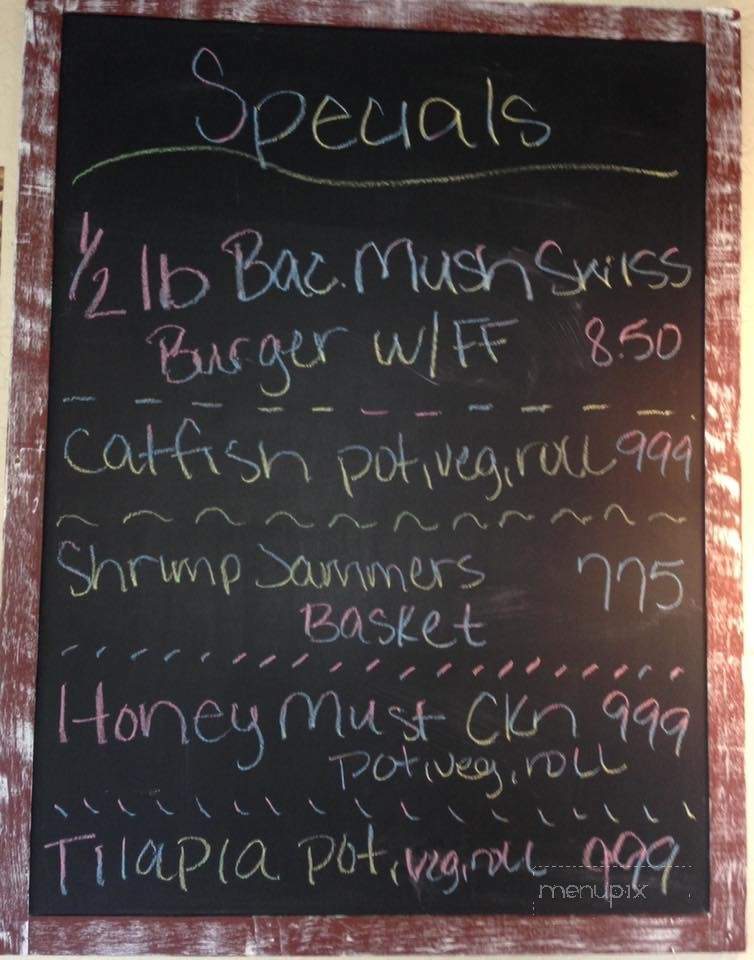 Specials
1/2 lb Bac. Mush Swiss
Burger w/FF 8.50
Catfish pot, veg, roll 999
Shrimp Jammers 775
Basket
Honey Must Ckn 999
pot, veg, roll
Tilapia pot, veg, roll 999
menupix